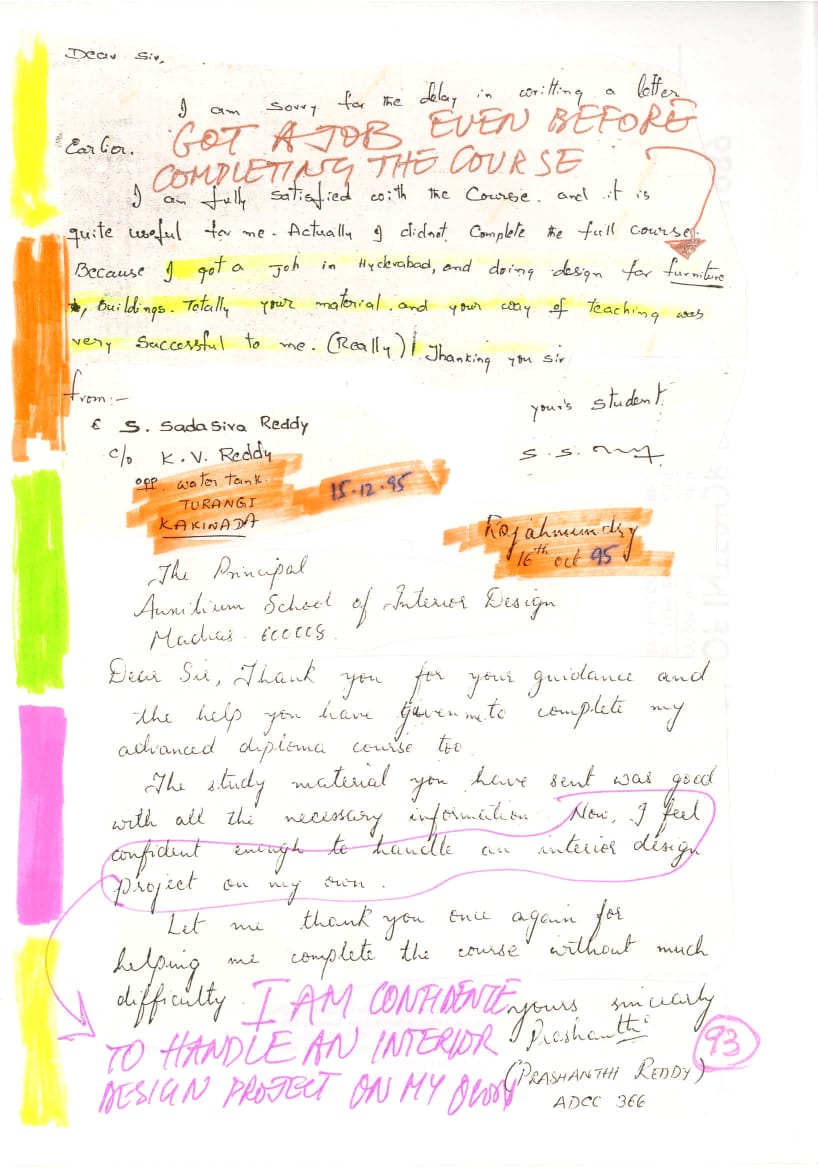 Dear Sir,
I am sorry for the delay in writting a letter
Earlier.
GOT A JOB EVEN BEFORE
COMPLETING THE COURSE
I am fully satisfied with the Course. and it is
quite useful for me. Actually I didnot Complete the full course.
Because I got a Job in Hyderabad, and doing design for furniture
, Buildings. Totally your material. and your way of teaching was
very Successful to me. (Really)! Thanking you sir
from:-
your's student
S. Sadasiva Reddy
S. S.
c/o K. V. Reddy
opp. water tank.
TURANGI
KAKINADA
15.12.95
Rajahmundry
16th oct 95
The Principal
Auxilium School of Interior Design
Madras
Dear Sir, Thank you for your guidance and
the help you have given me to complete my
advanced diploma course too.
The study material you have sent was good
with all the necessary information. Now, I feel
confident enough to handle an interior design
project on my own.
Let me thank you once again for
helping me complete the course without much
difficulty.
yours sincearly
Prashanthi
(PRASHANTHI REDDY)
ADCC 366
I AM CONFIDENTE
TO HANDLE AN INTERIOR
DESIGN PROJECT ON MY OWN
93